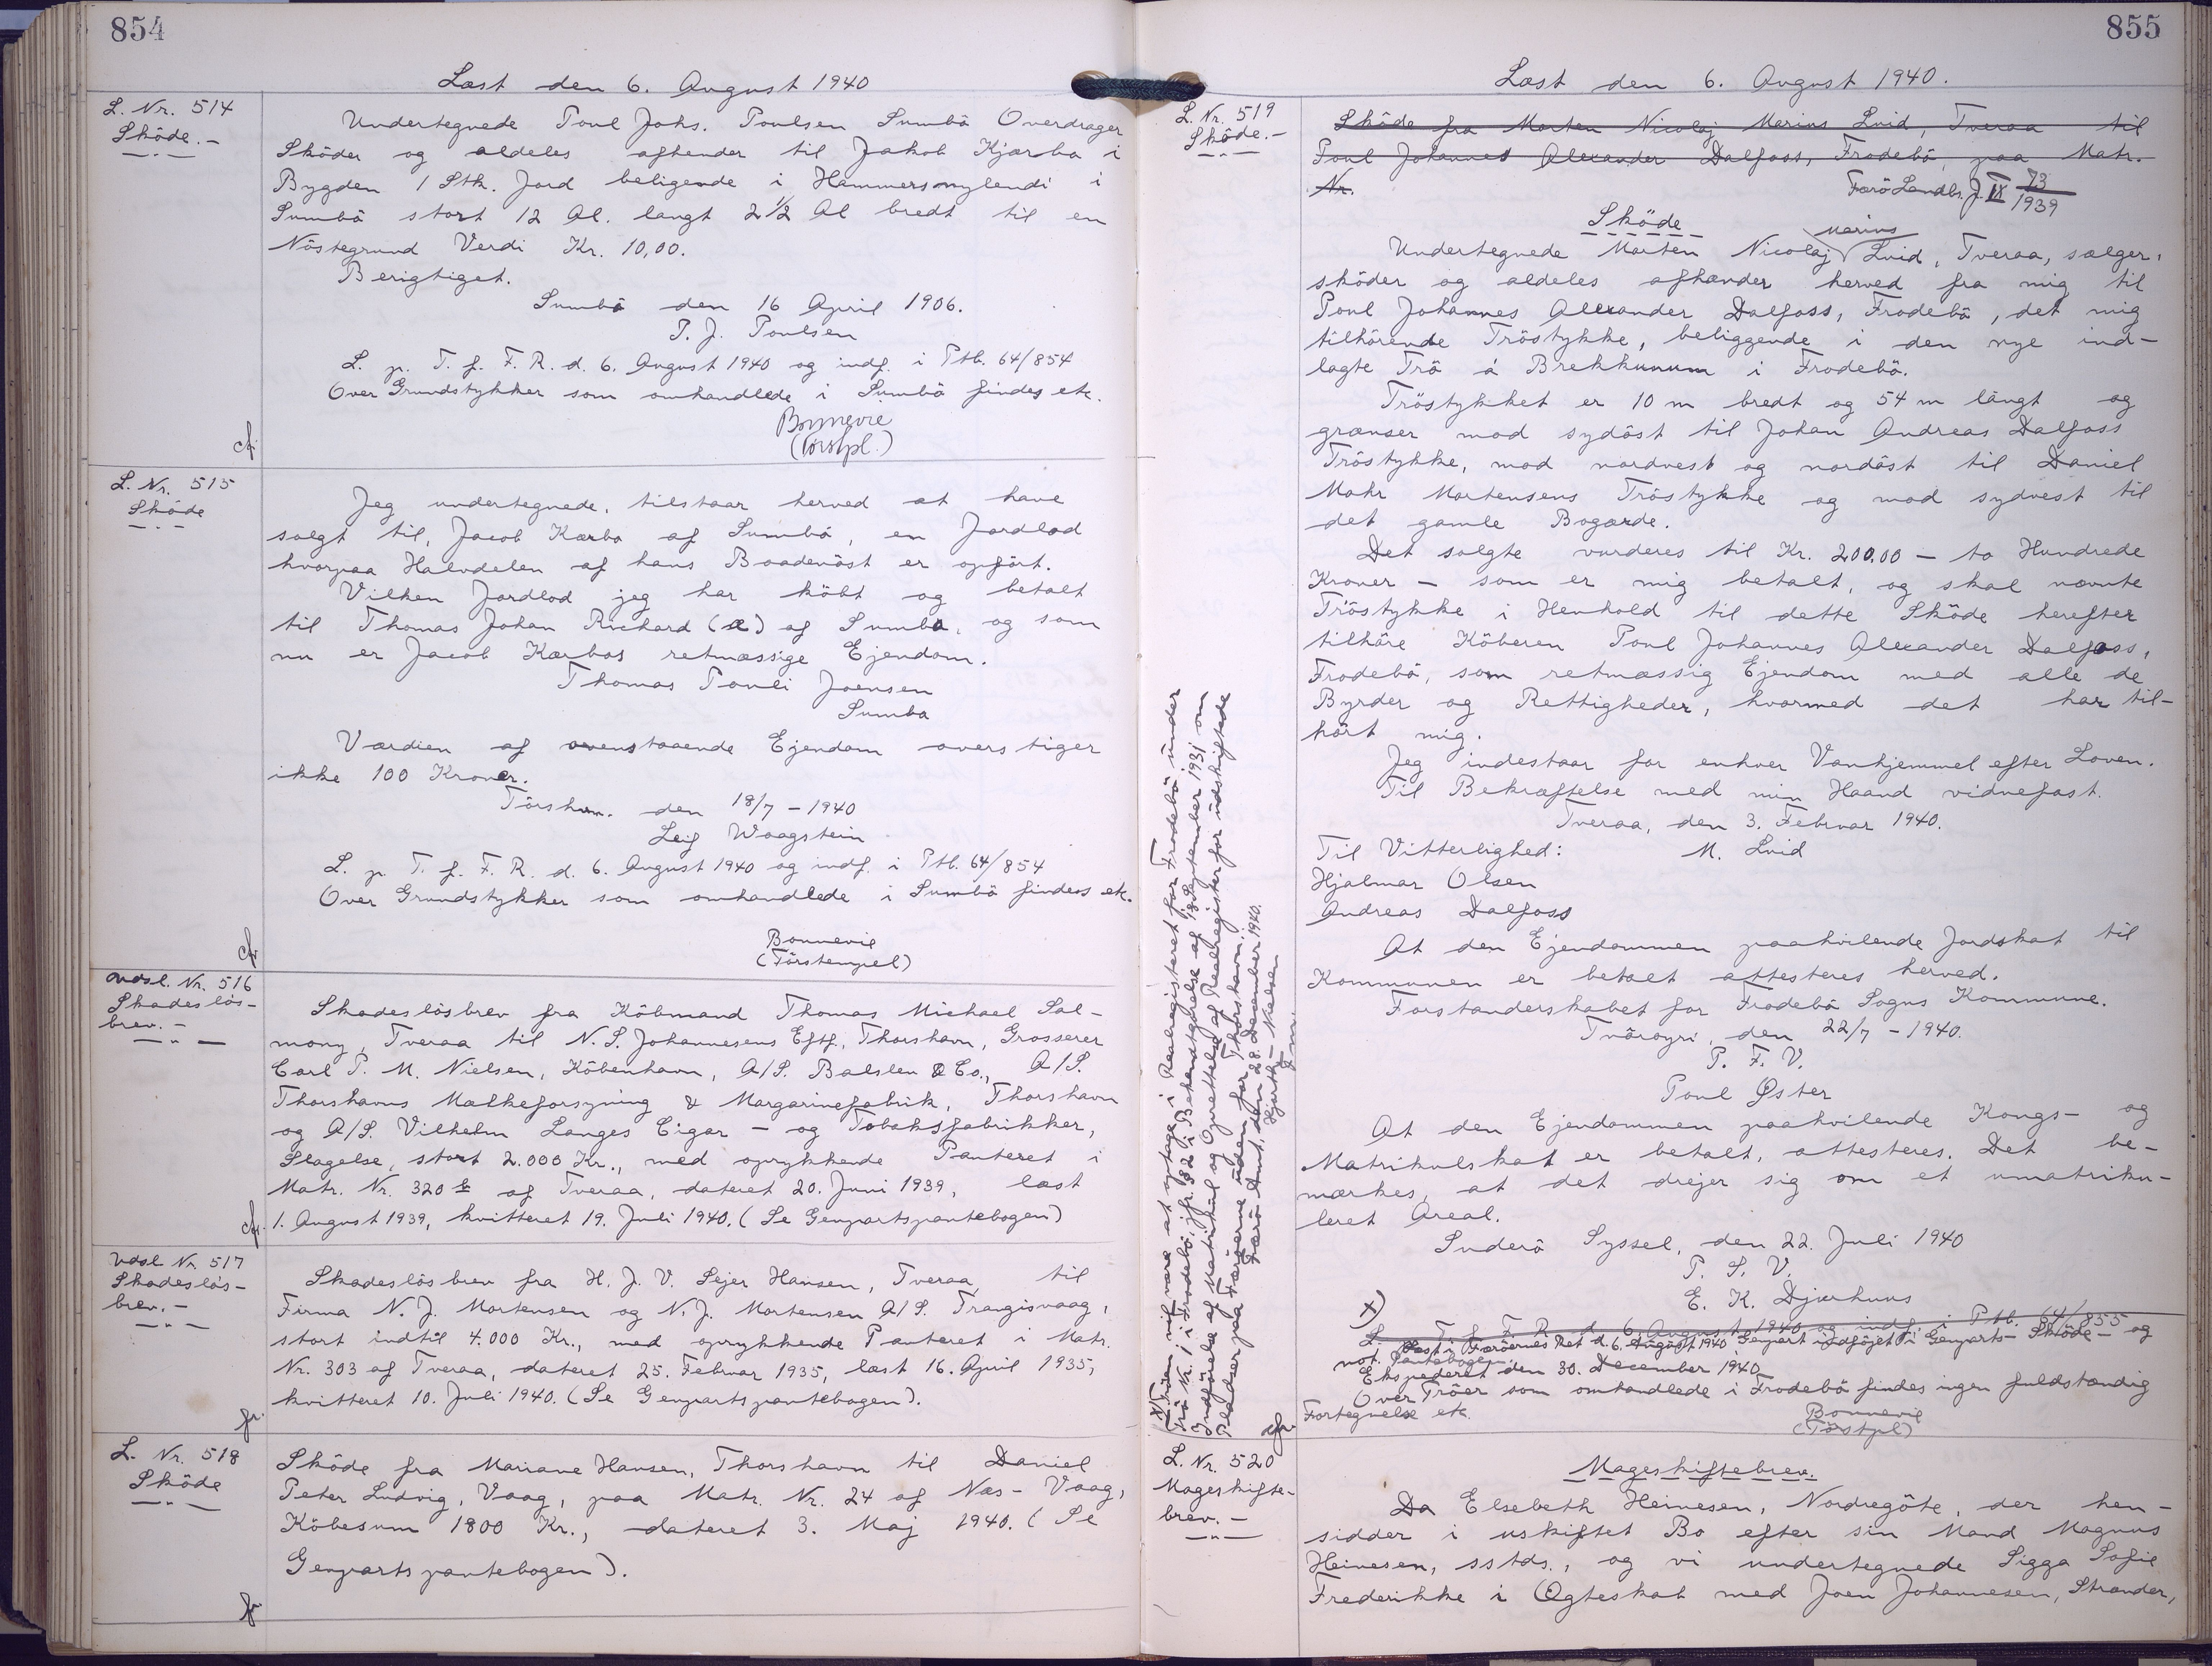 854
Læst den 6. August 1940
L. Nr. 514
Sköde. -
Undertegnede Poul Johs. Poulsen Sumbö Overdrager
Sköder og aldeles afhender til Jakob Kjærbo i
Bygden 1 Stk. Jord beligende i Hammersmylendi i
Sumbö stort 12 Al. langt 2 1/2 Al bredt til en
Nöstegrund Verdi Kr. 10,00.
Berigtiget.
Sumbö den 16 April 1906.
P. J. Poulsen
L. p. T. f. F. R. d. 6. August 1940 og indf. i Ptb. 64/854
Over Grundstykker som omhandlede i Sumbö findes etc.
Bonnevie
(Forstpl.)
cfr.
L. Nr. 515
Sköde
Jeg undertegnede, tilstaar herved at have
solgt til, Jacob Kærbo af Sumbö, en Jordlod
hvorpaa Halvdelen af hans Baadenöst er opfört.
Vilken Jordlod jeg har köbt og betalt
til Thomas Johan Richard (æ) af Sumbø, og som
nu er Jacob Kærbos retmæssige Ejendom.
Thomas Pouli Joensen
Sumba
Værdien af ovenstaaende Ejendom overstiger
ikke 100 Kroner.
Tórshavn. den 18/7 - 1940
Leif Waagstein
L. p. T. f. F. R. d. 6. August 1940 og indf. i Ptb. 64/854
Over Grundstykker som omhandlede i Sumbö findes etc.
Bonnevie
(Förstempel)
cfr
Udsl. Nr. 516
Skadeslös-
brev. -
Skadeslösbrev fra Köbmand Thomas Michael Sal-
mony, Tveraa til N. S. Johannesens Eftf., Thorshavn, Grosserer
Carl P. M. Nielsen, Köbenhavn, A/S. Balslev & Co., A/S.
Thorshavns Mælkeforsyning & Margarinefabrik, Thorshavn
og A/S. Vilhelm Langes Cigar - og Tobaksfabrikker,
Slagelse, stort 2.000 Kr., med oprykkende Panteret i
Matr. Nr. 320 af Tveraa, dateret 20. Juni 1939, læst
1. August 1939, kvitteret 19. Juli 1940. (Se Genpartspantebogen)
cfr.
Udsl. Nr. 517
Skadeslös-
brev. -
Skadeslösbrev fra H. J. V. Sejer Hansen, Tveraa, til
Firma N. J. Mortensen og N. J. Mortensen A/S. Trangisvaag,
stort indtil 4.000 Kr., med oprykkende Panteret i Matr.
Nr. 303 af Tveraa, dateret 25. Februar 1935, læst 16. April 1935,
kvitteret 10. Juli 1940. (Se Genpartspantebogen).
fr.
L. Nr. 518
Sköde
Sköde fra Mariane Hansen, Thorshavn til Daniel
Peter Ludvig, Vaag, paa Matr. Nr. 24 af Næs - Vaag,
Köbesum 1800 Kr., dateret 3. Maj 1940. (Se
Genpartspantebogen).
fr
855
Læst den 6. August 1940.
L. Nr. 519
Sköde. -
Sköde fra Morten Nicolaj Marius Lnid, Tveraa til
Poul Johannes Alexander Dalfoss, Frodebö, paa Matr.
Nr.
Færö Landbr. J. IX 73/1939
Sköde
Undertegnede Morten Nicolaj Marius Lnid, Tveraa, sælger,
sköder og aldeles afhænder herved fra mig til
Poul Johannes Alexander Dalfoss, Frodebö, det mig
tilhörende Tröstykke, beliggende i den nye ind-
lagte Trö á Brekkunum i Frodebö.
Tröstykket er 10 m bredt og 54 m långt og
grænser mod sydöst til Johan Andreas Dalfoss
Tröstykke, mod nordvest og nordöst til Daniel
Mohr Mortensens Tröstykke og mod sydvest til
det gamle Bogærde.
Det solgte vurderes til Kr. 200.00 - to Hundrede
Kroner - som er mig betalt, og skal nævnte
Tröstykke i Henhold til dette Sköde herefter
tilhöre Köberen Poul Johannes Alexander Dalfoss,
Frodebö, som retmæssig Ejendom med alle de
Byrder og Rettigheder, hvormed det har til-
hört mig.
Jeg indestaar for enhver Vanhjemmel efter Loven.
Til Bekræftelse med min Haand vidnefast.
Tveraa, den 3. Februar 1940.
Til Vitterlighed: M. Lnid
Hjalmar Olsen
Andreas Dalfoss
At den Ejendommen paahvilende Jordskat til
Kommunen er betalt attesteres herved.
Forstanderskabet for Frodebö Sogns Kommune.
Tvöroyri, den 22/7 - 1940.
P. F. V.
Poul Øster
At den Ejendommen paahvilende Kongs - og
Matrikulskat er betalt, attesteres. Det be-
mærkes, at det drejer sig om et umatriku-
leret Areal.
Suderö Syssel, den 22. Juli 1940
P. S. V.
E. K. Djurhuus
x)
L. p. T. f. F. R. d. 6. August 1940 og indf. i Ptb. 64/855
Læst i Færöernes Ret d. 6. August 1940. Genpart indföjet i Genparts- Sköde - og
not. Pantebogen
Ekspederet den 30. December 1940
Over Tröer som omhandlede i Frodebö findes ingen fuldstændig
Fortegnelse etc.
Bonnevie
(Förstpl)
jfr. § 82 i Bekendtgörelse af 18 September 1931 om
Indförelse af Matrikul og Oprettelse af Realregister for udskiftede
Pladser paa Færöerne uden for Thorshavn.
Færö Amt, den 28. December 1940.
Hjorth - Nielsen
cfr
L. Nr. 520
Mageskifte-
brev. -
Mageskiftebrev.
Da Elsebeth Heinesen, Nordregöte, der hen-
sidder i uskiftet Bo efter sin Mand Magnus
Heinesen, sstds., og vi undertegnede Sigga Sofie
Frederikke i Ægteskab med Joen Johannesen, Strander,